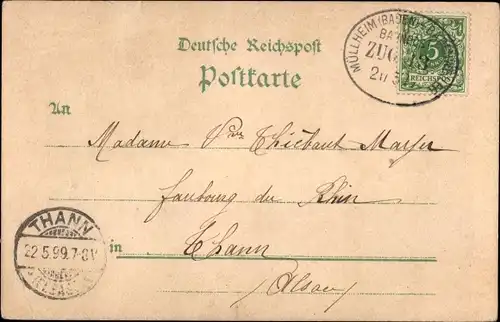 Deutsche Reichspost
Postkarte
MÜLLHEIM (BADEN)
BAHNPOST
ZUG
5
REICHSPOST
An
Madame Vve Thiébaut Mayer
faubourg du Rhin
in Thann
(Alsace)
THANN
22.5.99.7-8V